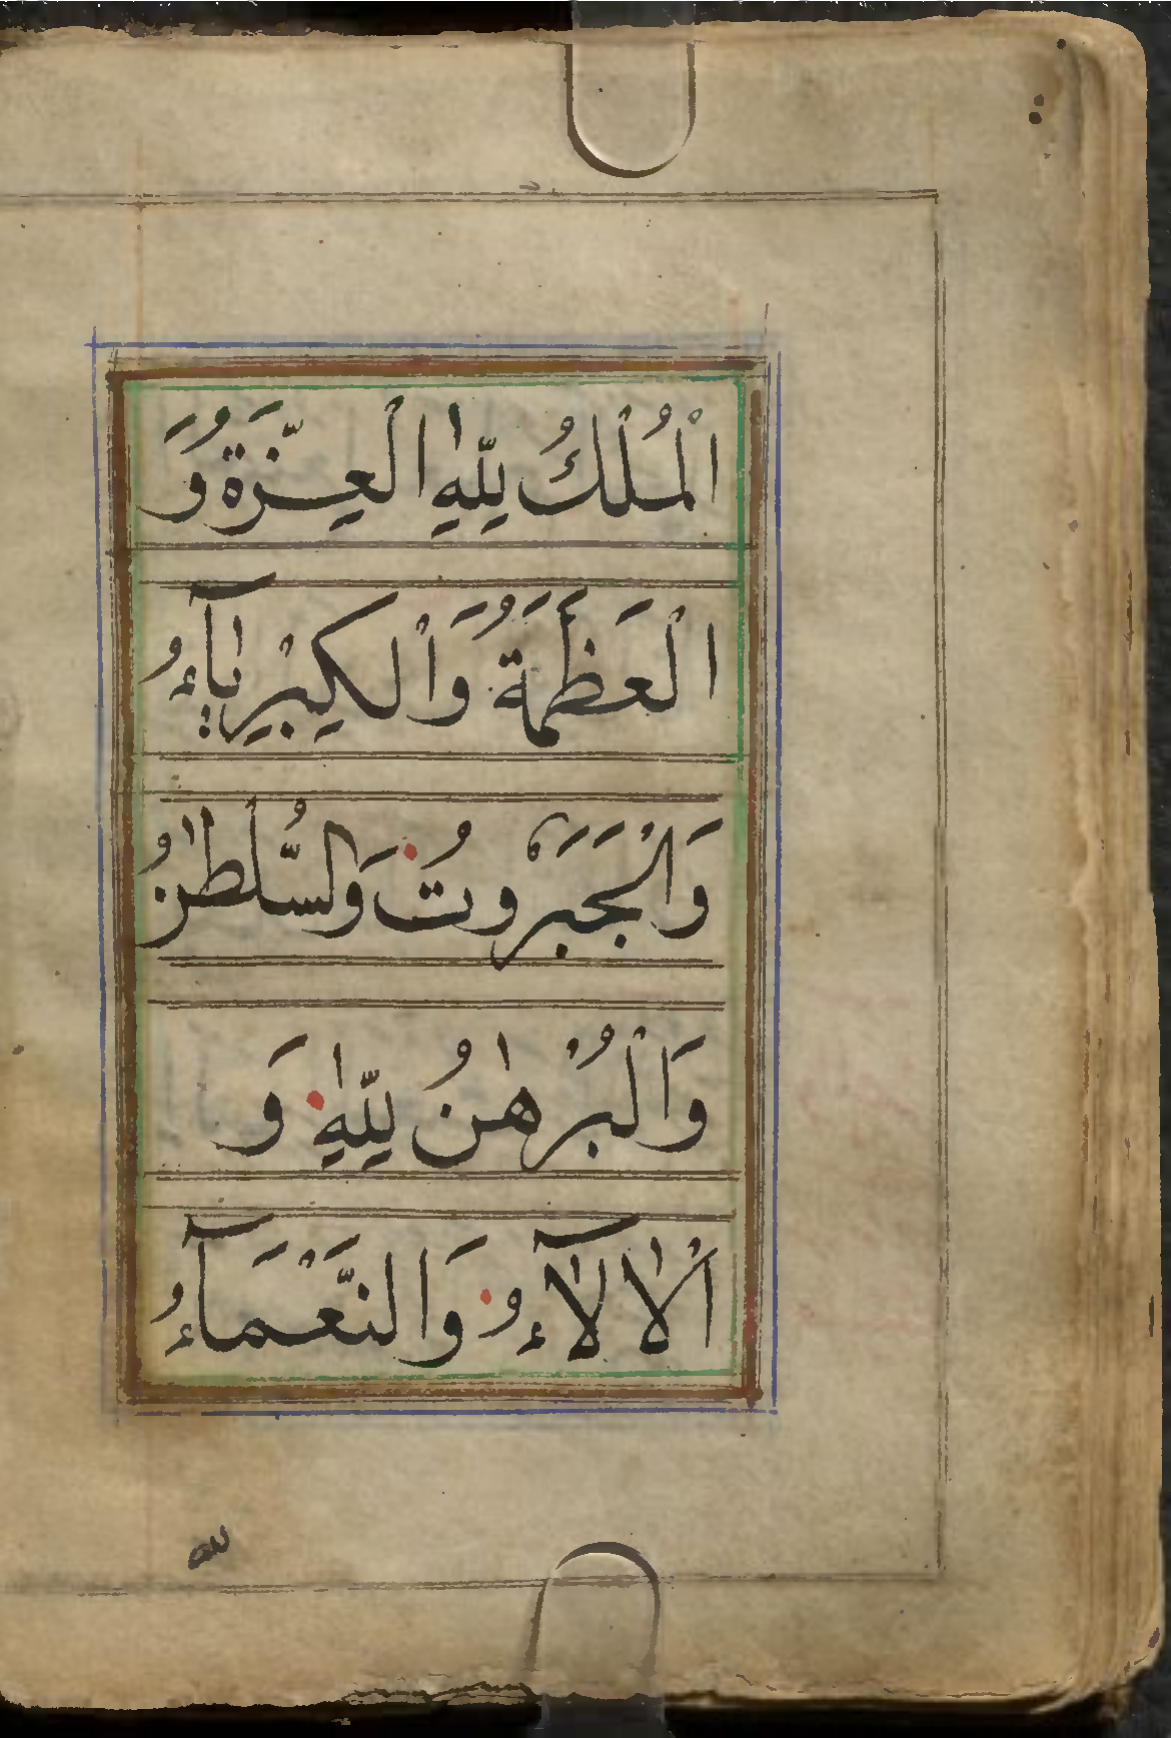 اَلْمُلْكُ لِلّٰهِ الْعِزَّةُ وَ
الْعَظَمَةُ وَالْكِبْرِيَآءُ
وَالْجَبَرُوتُ وَالسُّلْطٰنُ
وَالْبُرْهٰنُ لِلّٰهِ وَ
اْلاٰلآءُ وَالنَّعْمَآءُ
لله